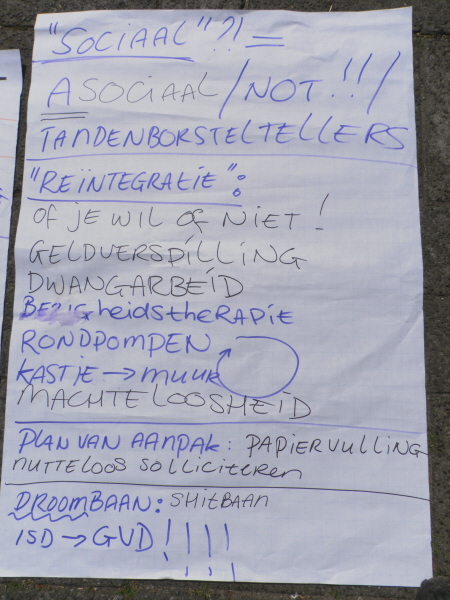 "SOCIAAL"?! =
ASOCIAAL/NOT!!/
TANDENBORSTELTELLERS
"REïNTEGRATIE":
OF JE WIL OF NIET!
GELDVERSPILLING
DWANGARBEID
BEZIGheidstheRAPiE
RONDPOMPEN
KASTJE → MUUR
MACHTELOOSHEID
PLAN VAN AANPAK: PAPIERVULLING
NUTTELOOS SOLLICITEREN
DROOMBAAN: SHITBAAN
ISD → GVD!!!!!